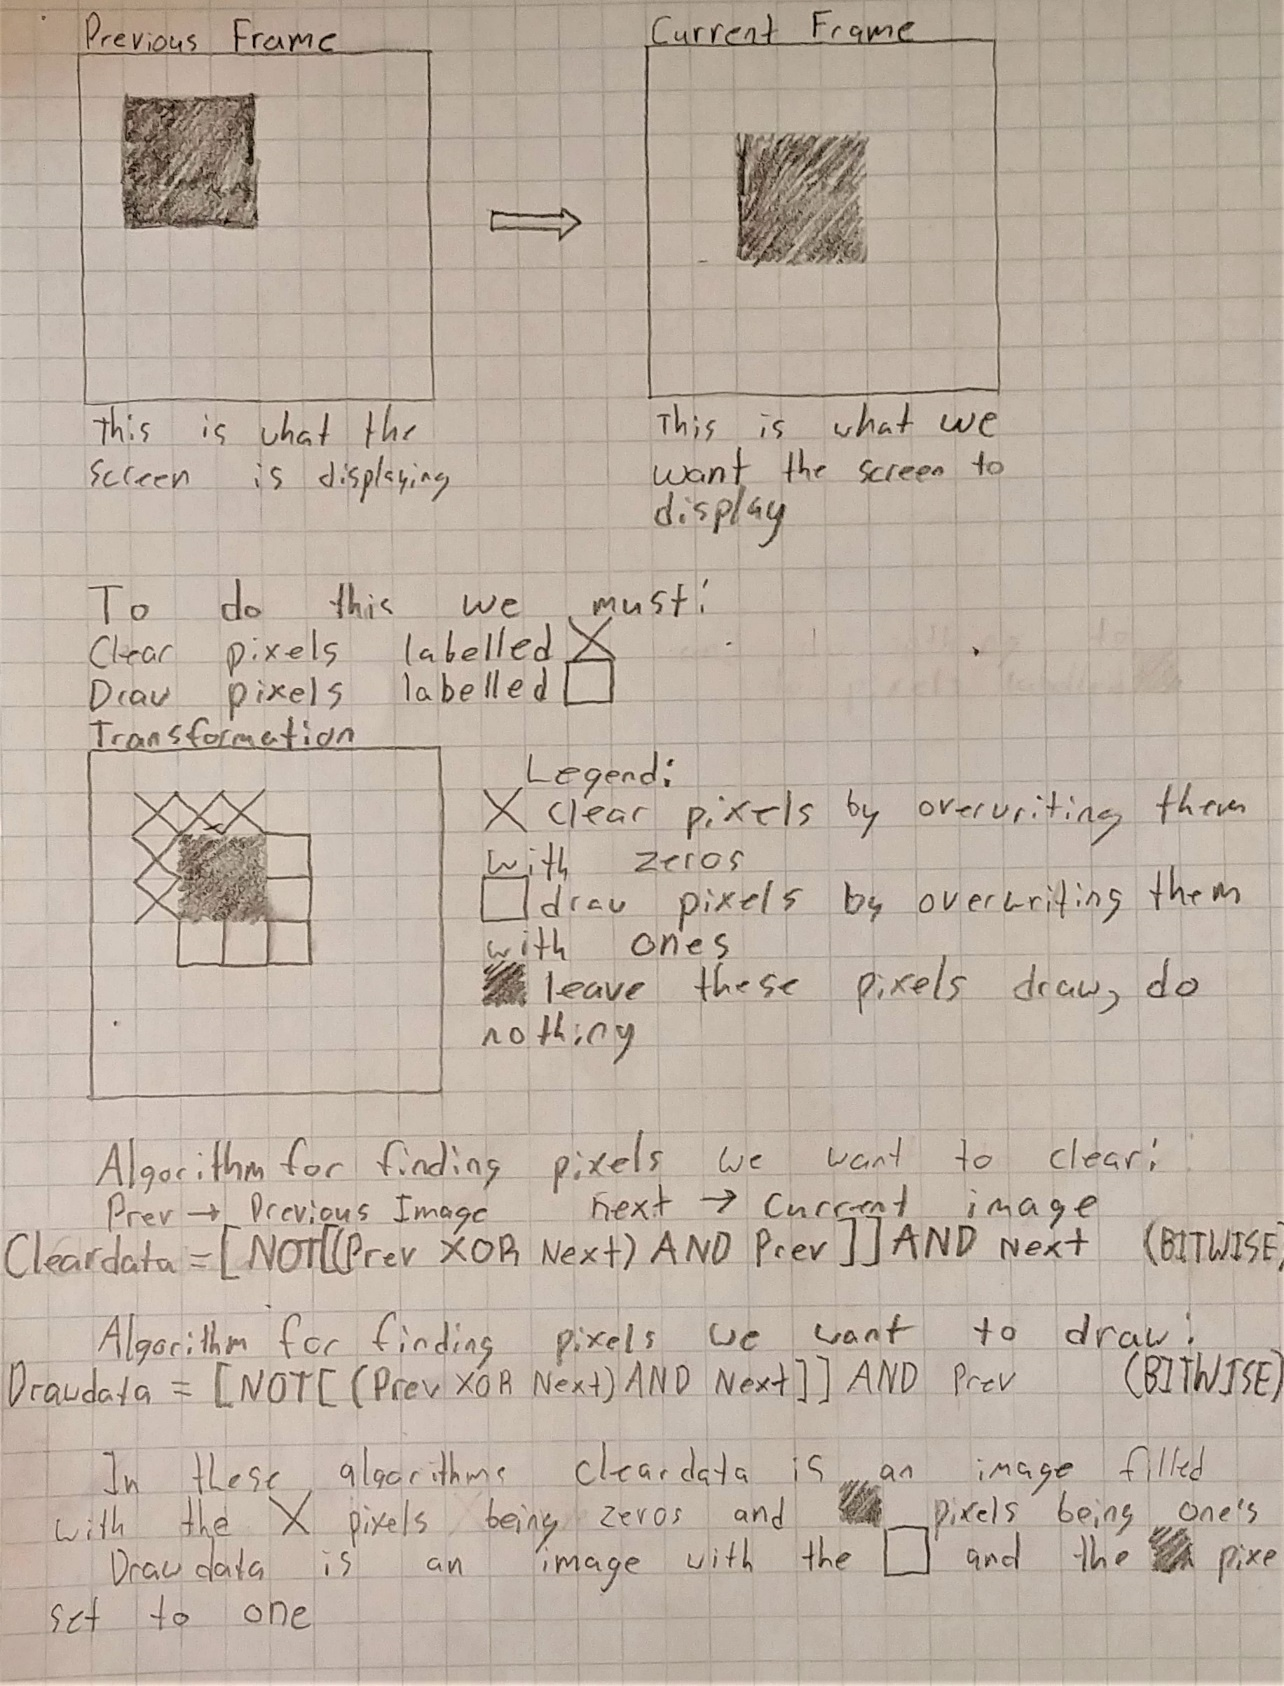 Previous Frame
Current Frame
This is what the
screen is displaying
This is what we
want the screen to
display
To do this we must:
Clear pixels labelled
Draw pixels labelled
Transformation
Legend:
clear pixels by overwriting them
with zeros
draw pixels by overwriting them
with ones
leave these pixels draw, do
nothing
Algorithm for finding pixels we want to clear:
Prev → Previous Image next → Current image
Cleardata = [NOT[(Prev XOR Next) AND Prev]] AND Next (BITWISE)
Algorithm for finding pixels we want to draw:
Drawdata = [NOT[(Prev XOR Next) AND Next]] AND Prev (BITWISE)
In these algorithms cleardata is an image filled
with the X pixels being zeros and pixels being one's
Drawdata is an image with the and the pixe
set to one